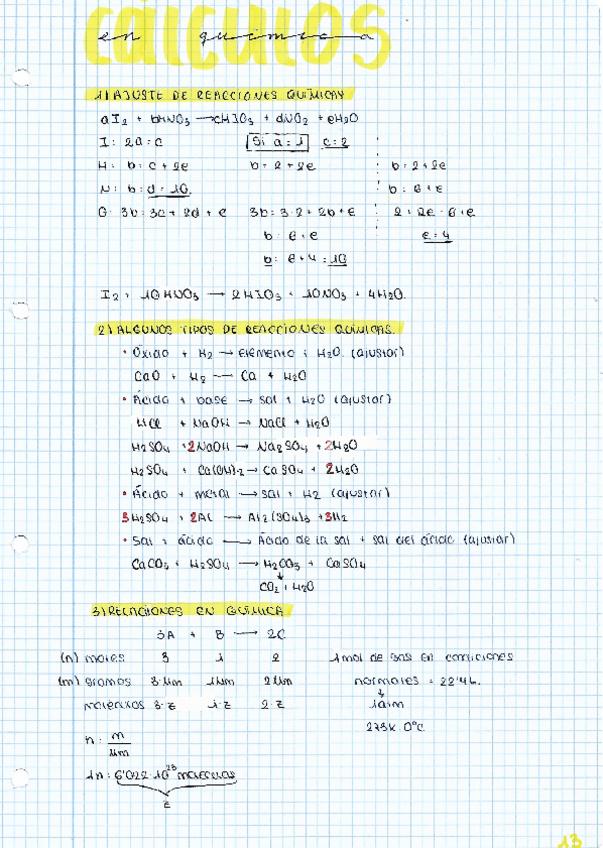 CÁLCULOS
en química
1) AJUSTE DE REACCIONES QUÍMICAS
aI₂ + bHNO₃ → cHIO₃ + dNO₂ + eH₂O
I: 2a = c Si a = 1 c = 2
H: b = c + 2e b = 2 + 2e b = 2 + 2e
N: b = d = 10 b = 6 + e
O: 3b = 3c + 2d + e 3b = 3·2 + 2b + e 2 + 2e = 6 + e
b = 6 + e e = 4
b = 6 + 4 = 10
I₂ + 10HNO₃ → 2HIO₃ + 10NO₂ + 4H₂O.
2) ALGUNOS TIPOS DE REACCIONES QUÍMICAS.
• Óxido + H₂ → elemento + H₂O (ajustar)
CaO + H₂ → Ca + H₂O
• Ácido + base → sal + H₂O (ajustar)
HCl + NaOH → NaCl + H₂O
H₂SO₄ + 2NaOH → Na₂SO₄ + 2H₂O
H₂SO₄ + Ca(OH)₂ → CaSO₄ + 2H₂O
• Ácido + metal → sal + H₂ (ajustar)
3H₂SO₄ + 2Al → Al₂(SO₄)₃ + 3H₂
• Sal + ácido → Ácido de la sal + sal del ácido (ajustar)
CaCO₃ + H₂SO₄ → H₂CO₃ + CaSO₄
↓
CO₂ + H₂O
3) RELACIONES EN QUÍMICA
3A + B → 2C
(n) moles 3 1 2 1 mol de gas en condiciones
(m) gramos 3·Mm 1·Mm 2·Mm normales = 22'4L.
↓
moléculas 3·z 1·z 2·z 1atm
273K · 0°C
n = m
Mm
1n = 6'022·10²³ moléculas
z
13